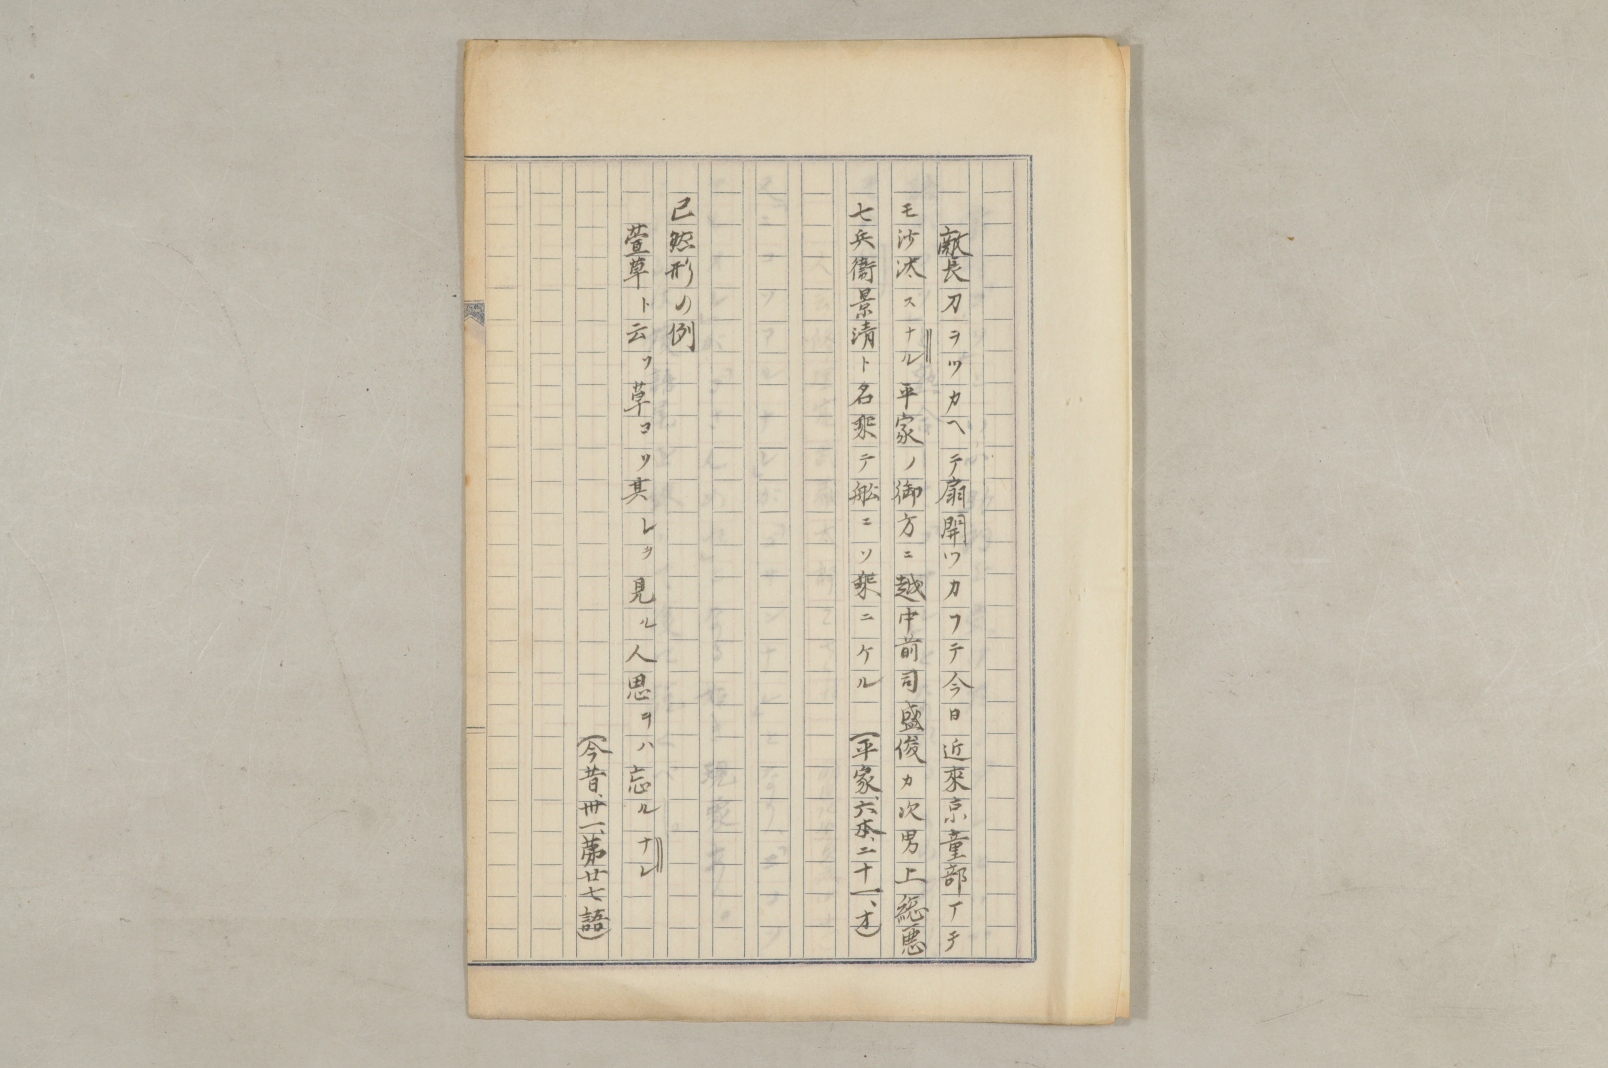 敵長刀ヲツカヘテ扇開ツカフテ今日近來京童部イチ
モ沙汰スナル平家ノ御方ニ越中前司盛俊カ次男上総悪
七兵衛景清ト名乘テ舩ニソ乘ニケル　（平家、六本、二十一、オ）
已然形の例
萱草ト云フ草コソ其レヲ見ル人思ヲハ忘ルナレ
（今昔、卅一、第廿七語）